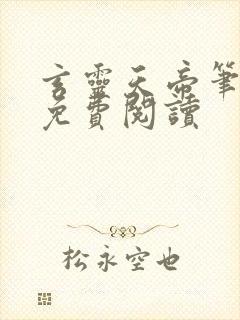 言靈天帝筆
免費閱讀
松永空也